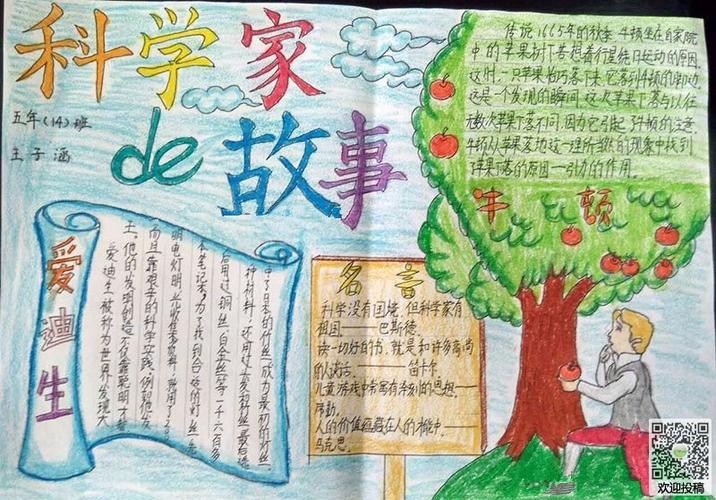 科学家
de
故事
五年(14)班
王子涵
传说1665年的秋季,牛顿坐在自家院
中的苹果树下苦想着行星绕日运动的原因.
这时,一只苹果恰巧落下来,它落到牛顿的脚边.
这是一个发现的瞬间,这次苹果下落与以往
无数次苹果下落不同,因为它引起了牛顿的注意.
牛顿从苹果落地这一理所当然的现象中找到
苹果下落的原因—引力的作用.
牛顿
爱迪生
爱迪生被称为世界发明大
王。他的发明创造不仅靠聪明才智
而且靠艰辛的科学实践。例如他发
明电灯时光收集资料,就用了200
本笔记本,为了找到合适的灯丝,先
后用过铜丝、白金丝等一千六百多
种材料,还用过头发和 丝 最后选
中了日本的竹丝成为最初的灯丝.
名言
科学没有国境,但科学家有
祖国——巴斯德.
读一切好的书,就是和许多高尚
的人谈话.——笛卡尔.
儿童游戏中常寓有深刻的思想——
席勒.
人的价值蕴藏在人的才能中.——
马克思.
欢迎投稿